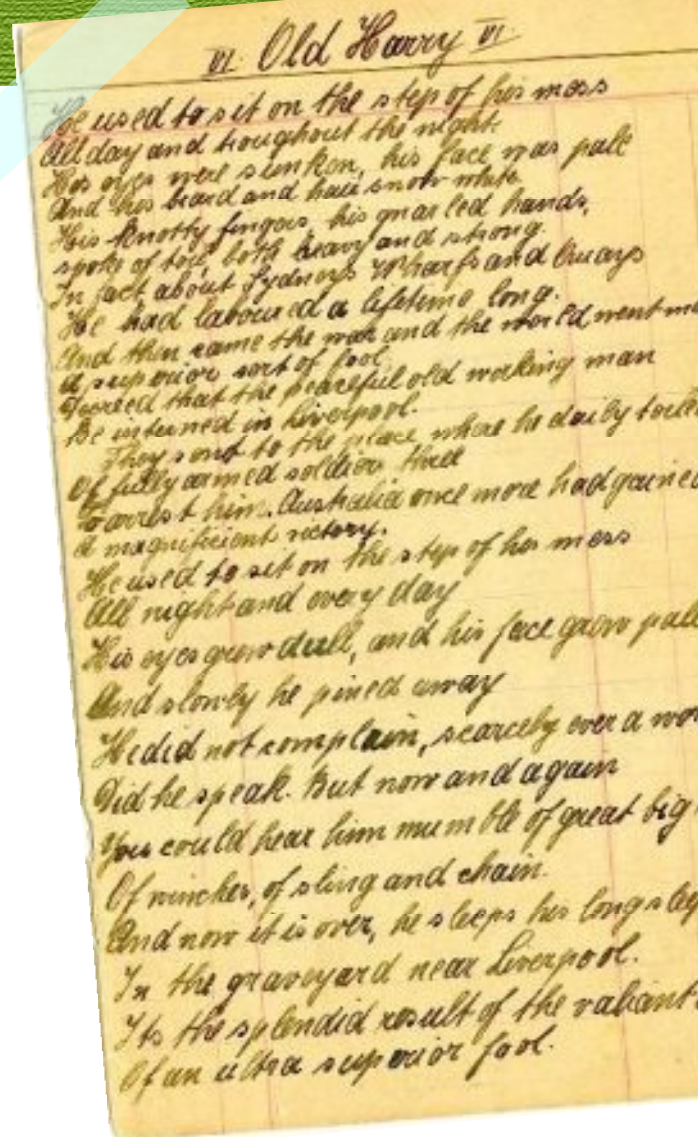 VI Old Harry VI
He used to sit on the step of his mess
All day and troughout the night.
His eyes were sunken, his face was pale
And his beard and hair snow white.
His knotty fingers, his gnarled hands,
spoke of toil, both heavy and strong.
In fact about Sydneys Wharfs and Quays
He had laboured a lifetime long.
And then came the war and the world went
A superior sort of fool
Decreed that the peaceful old working man
Be interned in Liverpool.
They sent to the place, where he daily
Of fully armed soldiers three
To arrest him. Australia once more had gained
A magnificent victory.
He used to sit on the step of his mess
All night and every day
His eyes grew dull, and his face grew pale
And slowly he pined away
He did not complain, scarcely ever a
Did he speak. But now and again
You could hear him mumble of great big
Of winches, of sling and chain.
And now it is over, he sleeps his long
In the graveyard near Liverpool.
Its the splendid result of the valiant
Of an ultra superior fool.